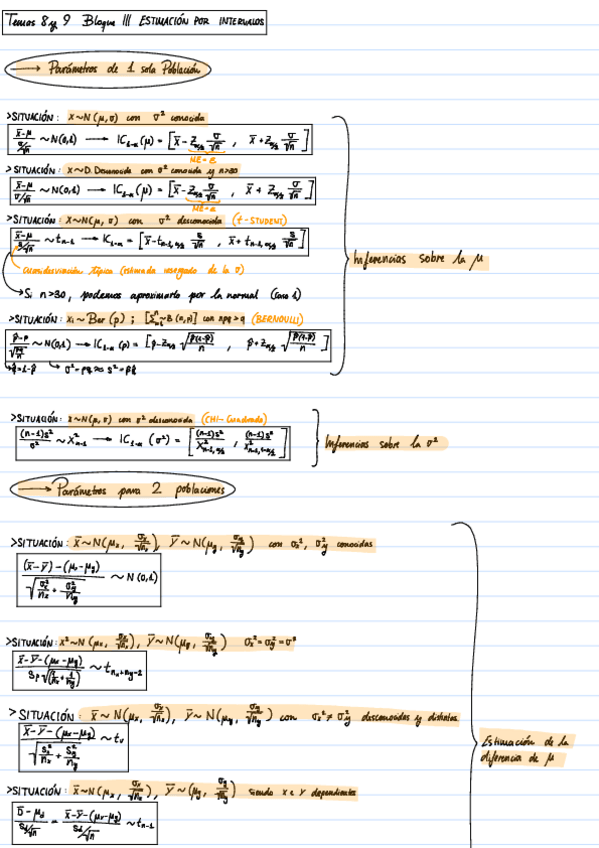 Temas 8 y 9 Bloque III ESTIMACIÓN POR INTERVALOS
→ Parámetros de 1 sola Población
>SITUACIÓN: x~N(μ,σ) con σ² conocida
(x̄-μ)/(σ/√n) ~ N(0,1) → IC₁₋α(μ) = [x̄ - Z_α/2 σ/√n , x̄ + Z_α/2 σ/√n]
>SITUACIÓN: x~D. Desconocida con σ² conocida y n>30
(x̄-μ)/(σ/√n) ~ N(0,1) → IC₁₋α(μ) = [x̄ - Z_α/2 σ/√n , x̄ + Z_α/2 σ/√n]
>SITUACIÓN: x~N(μ,σ) con σ² desconocida (t-STUDENT)
(x̄-μ)/(s/√n) ~ tₙ₋₁ → IC₁₋α = [x̄ - t_n-1,α/2 s/√n , x̄ + t_n-1,α/2 s/√n]
Cuasidesviación típica (estimador insesgado de la σ)
→ Si n>30, podemos aproximarlo por la normal (caso 1)
Inferencias sobre la μ
>SITUACIÓN: xᵢ~Ber(p) ; [Σ~B(n,p)] con npq>9 (BERNOULLI)
(p̂-p)/√(pq/n) ~ N(0,1) → IC₁₋α(p) = [p̂ - Z_α/2 √(p̂(1-p̂)/n) , p̂ + Z_α/2 √(p̂(1-p̂)/n)]
→ q̂=1-p̂ → σ²=pq ≈ s²=p̂q̂
>SITUACIÓN: x~N(μ,σ) con σ² desconocida (CHI-Cuadrado)
(n-1)s²/σ² ~ χ²ₙ₋₁ → IC₁₋α(σ²) = [(n-1)s²/χ²_n-1,α/2 , (n-1)s²/χ²_n-1,1-α/2]
Inferencias sobre la σ²
→ Parámetros para 2 poblaciones
>SITUACIÓN: x̄~N(μₓ, σₓ/√nₓ), ȳ~N(μ_y, σ_y/√n_y) con σₓ², σ_y² conocidas
((x̄-ȳ)-(μₓ-μ_y))/√(σₓ²/nₓ + σ_y²/n_y) ~ N(0,1)
>SITUACIÓN: x̄~N(μₓ, σₓ/√nₓ), ȳ~N(μ_y, σ_y/√n_y) σₓ²=σ_y²=σ²
(x̄-ȳ-(μₓ-μ_y))/(Sp√(1/nₓ + 1/n_y)) ~ t_nₓ+n_y-2
>SITUACIÓN: x̄~N(μₓ, σₓ/√nₓ), ȳ~N(μ_y, σ_y/√n_y) con σₓ²≠σ_y² desconocidas y distintas
(x̄-ȳ-(μₓ-μ_y))/√(Sₓ²/nₓ + S_y²/n_y) ~ t_v
Estimación de la
diferencia de μ
>SITUACIÓN: x̄~N(μₓ, σₓ/√nₓ), ȳ~(μ_y, σ_y/√n_y) siendo x e y dependientes
(D̄-μ_d)/(Sd/√n) = (x̄-ȳ-(μₓ-μ_y))/(Sd/√n) ~ tₙ₋₁